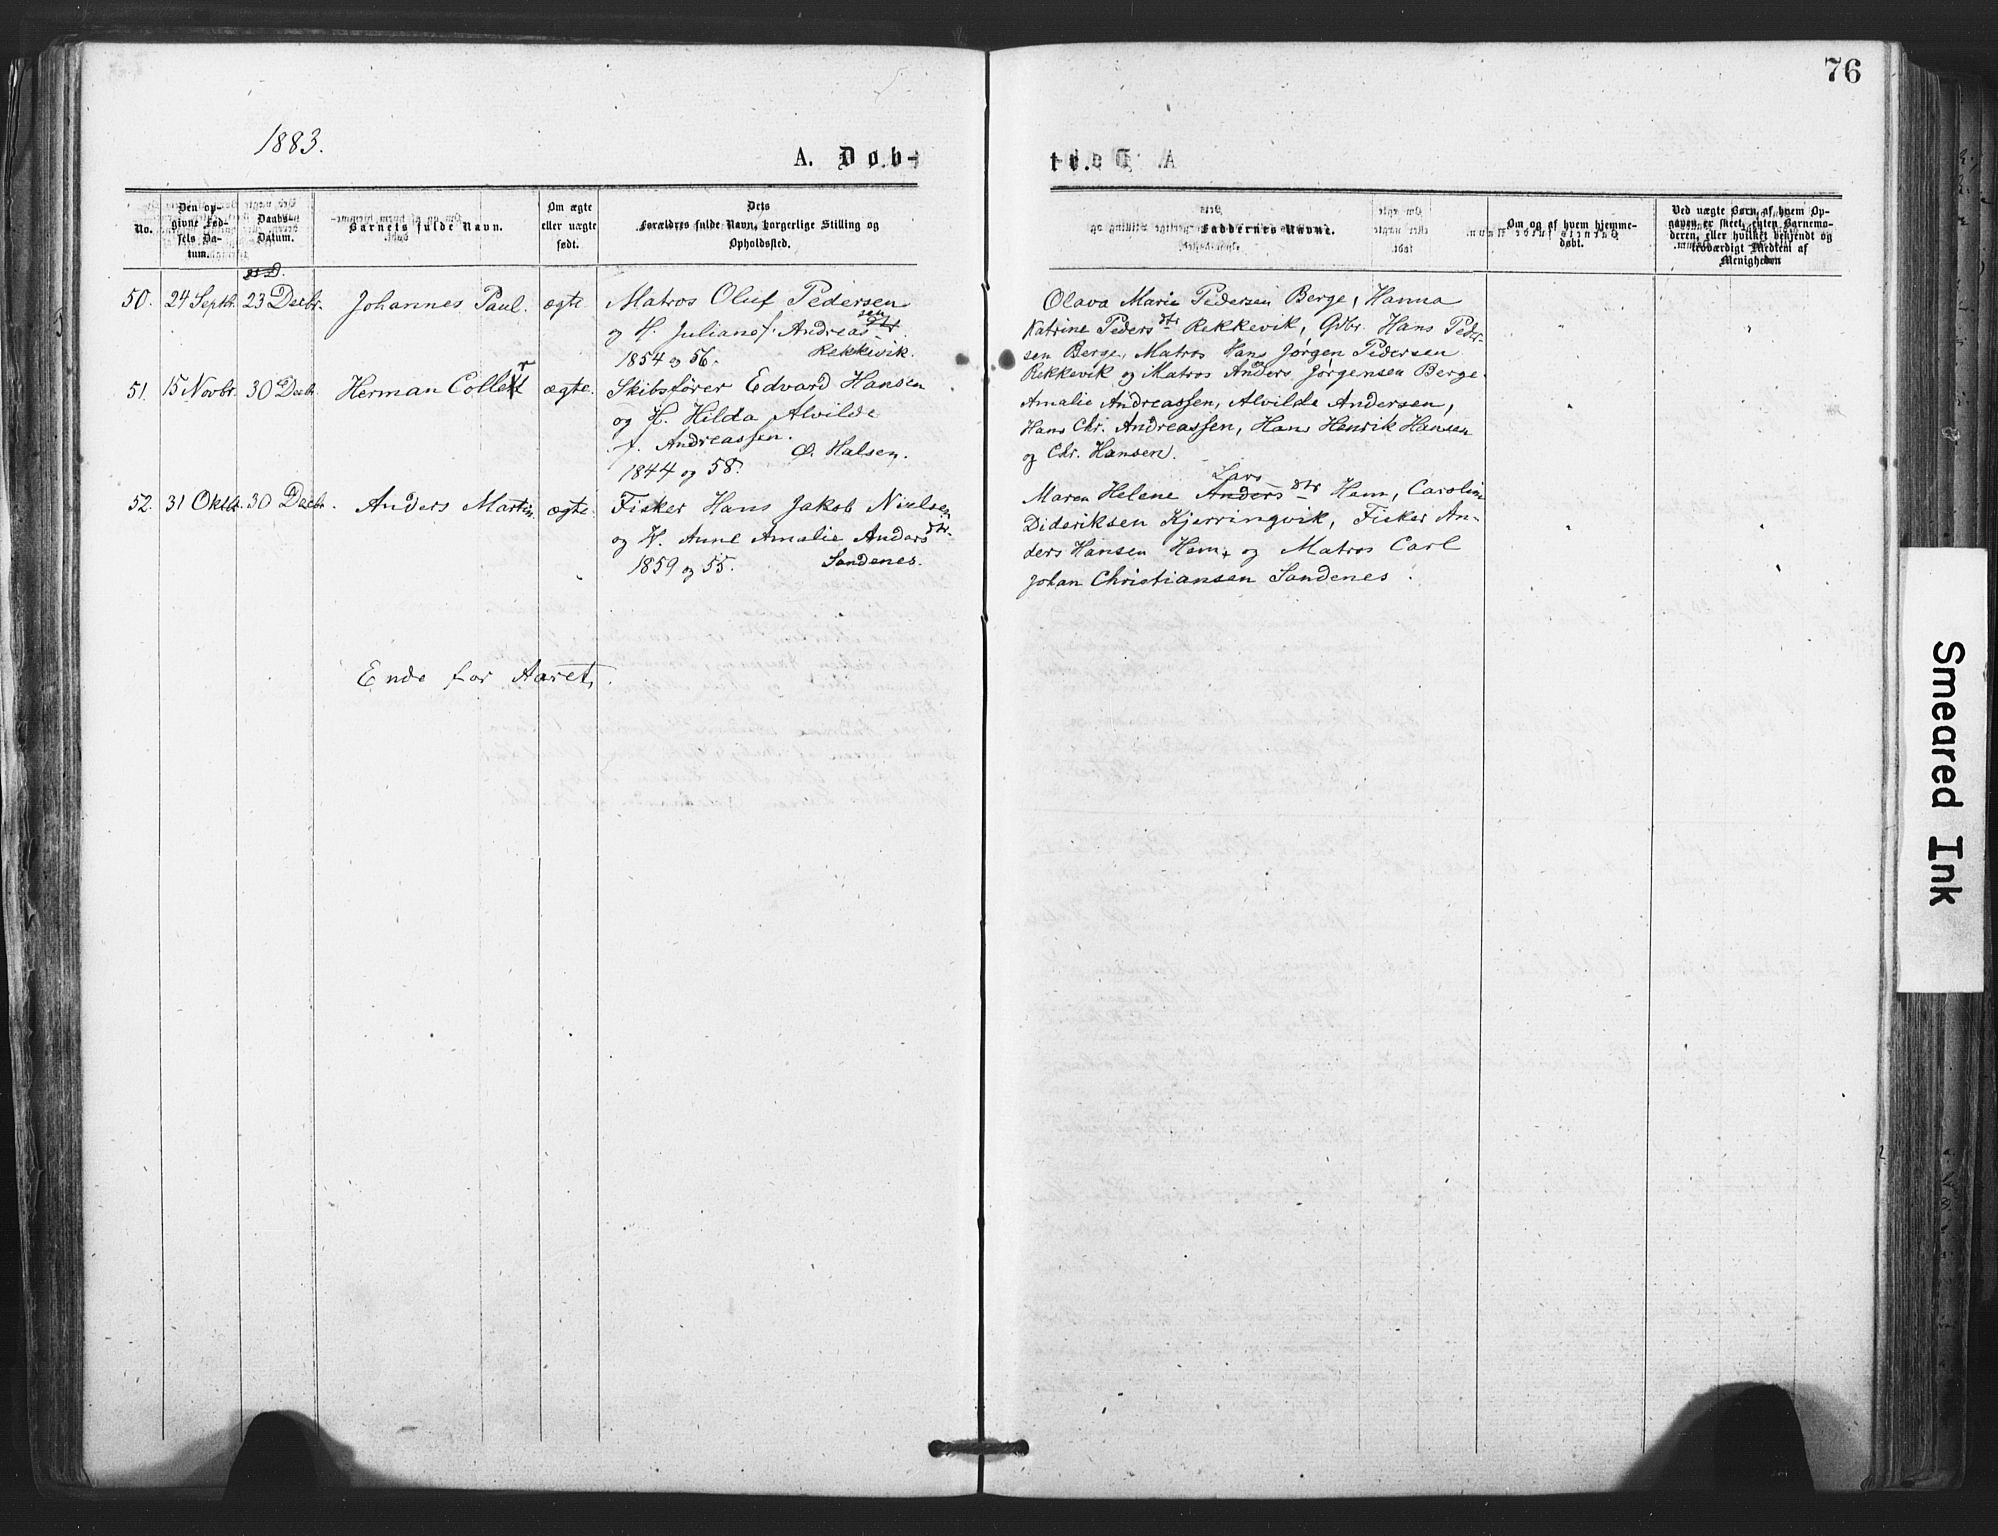 76
1883.
A. Døb-
te.
No.
Den opgivne Fødsels Datum.
Daabs-Datum.
Barnets fulde Navn.
Om ægte eller uægte født.
Dets Forældres fulde Navn, borgerlige Stilling og Opholdssted.
Faddernes Navne.
Om og af hvem hjemmedøbt.
Ved uægte Børn, af hvem Opgaven er skeet, enten Barnemoderen, eller hvilket bekjendt og troværdigt Medlem af Menigheden
50. 24 Septbr. 23 Decbr. Johannes Paul. ægte
Matros Oluf Pedersen
og H. Juliane f. Andreassen
Rekkevik.
1854 og 56.
Olava Marie Pedersen Berge, Hanna
Katrine Pedersdtr Rekkevik, Gdbr. Hans Peder-
sen Berge, Matros Hans Jørgen Pedersen
Rekkevik og Matros Anders Jørgensen Berge.
51. 15 Novbr. 30 Decbr. Herman Collett ægte.
Skibsfører Edvard Hansen
og H. Hilda Alvilde
f. Andreassen.
Ø. Halsen.
1844 og 58.
Amalie Andreassen, Alvilde Andersen,
Hans Chr. Andreassen, Hans Henrik Hansen
og Chr. Hansen.
52. 31 Oktbr. 30 Decbr. Anders Martin. ægte.
Fisker Hans Jakob Nielsen
og H. Anne Amalie Andersdtr.
1859 og 55. Sandenes.
Lars
Maren Helene Anders dtr Ham, Caroline
Dideriksen Kjerringvik, Fisker An-
ders Hansen Ham, og Matros Carl
Johan Christiansen Sandenes.
Ende for Aaret.
Smeared Ink